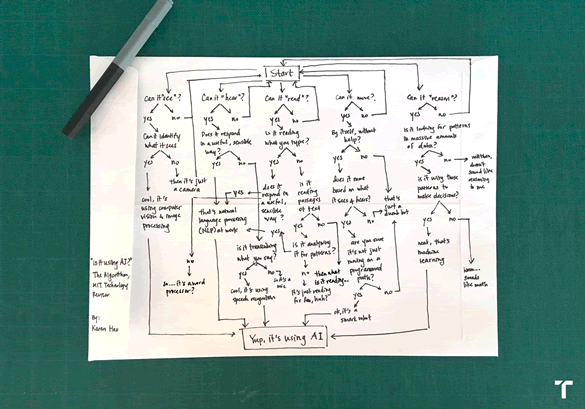 Start
Can it "see"?
yes
no
Can it identify
what it sees
yes
no
then it's just
a camera
cool, it's
using computer
vision & image
processing
Can it "hear"?
yes
no
Does it respond
in a useful, sensible
way?
yes
no
that's natural
language processing
(NLP) at work
is it transcribing
what you say?
yes
no
cool, it's using
speech recognition
so it's a
mic
Can it "read"?
yes
no
Is it reading
what you type?
yes
no
does it
respond in
a useful,
sensible
way?
yes
no
so... it's a word
processor?
is it
reading
passages
of text
yes
no
is it analyzing
it for patterns?
yes
no
it's just reading
for fun, huh?
then what
is it reading...
Can it move?
yes
no
By itself, without
help?
yes
no
does it move
based on what
it sees & hears?
yes
no
that's
just a
dumb bot
are you sure
it's not just
moving on a
programmed
path?
yes
no
ok, it's a
smart robot
Can it "reason"?
yes
no
is it looking for patterns
in massive amounts
of data?
yes
no
well then,
doesn't sound
like reasoning
to me
is it using those
patterns to
make decisions?
yes
no
neat, that's
machine
learning
hmm...
sounds
like math
Yup, it's using AI
"Is it using AI?"
The Algorithm,
MIT Technology
Review
By:
Karen Hao